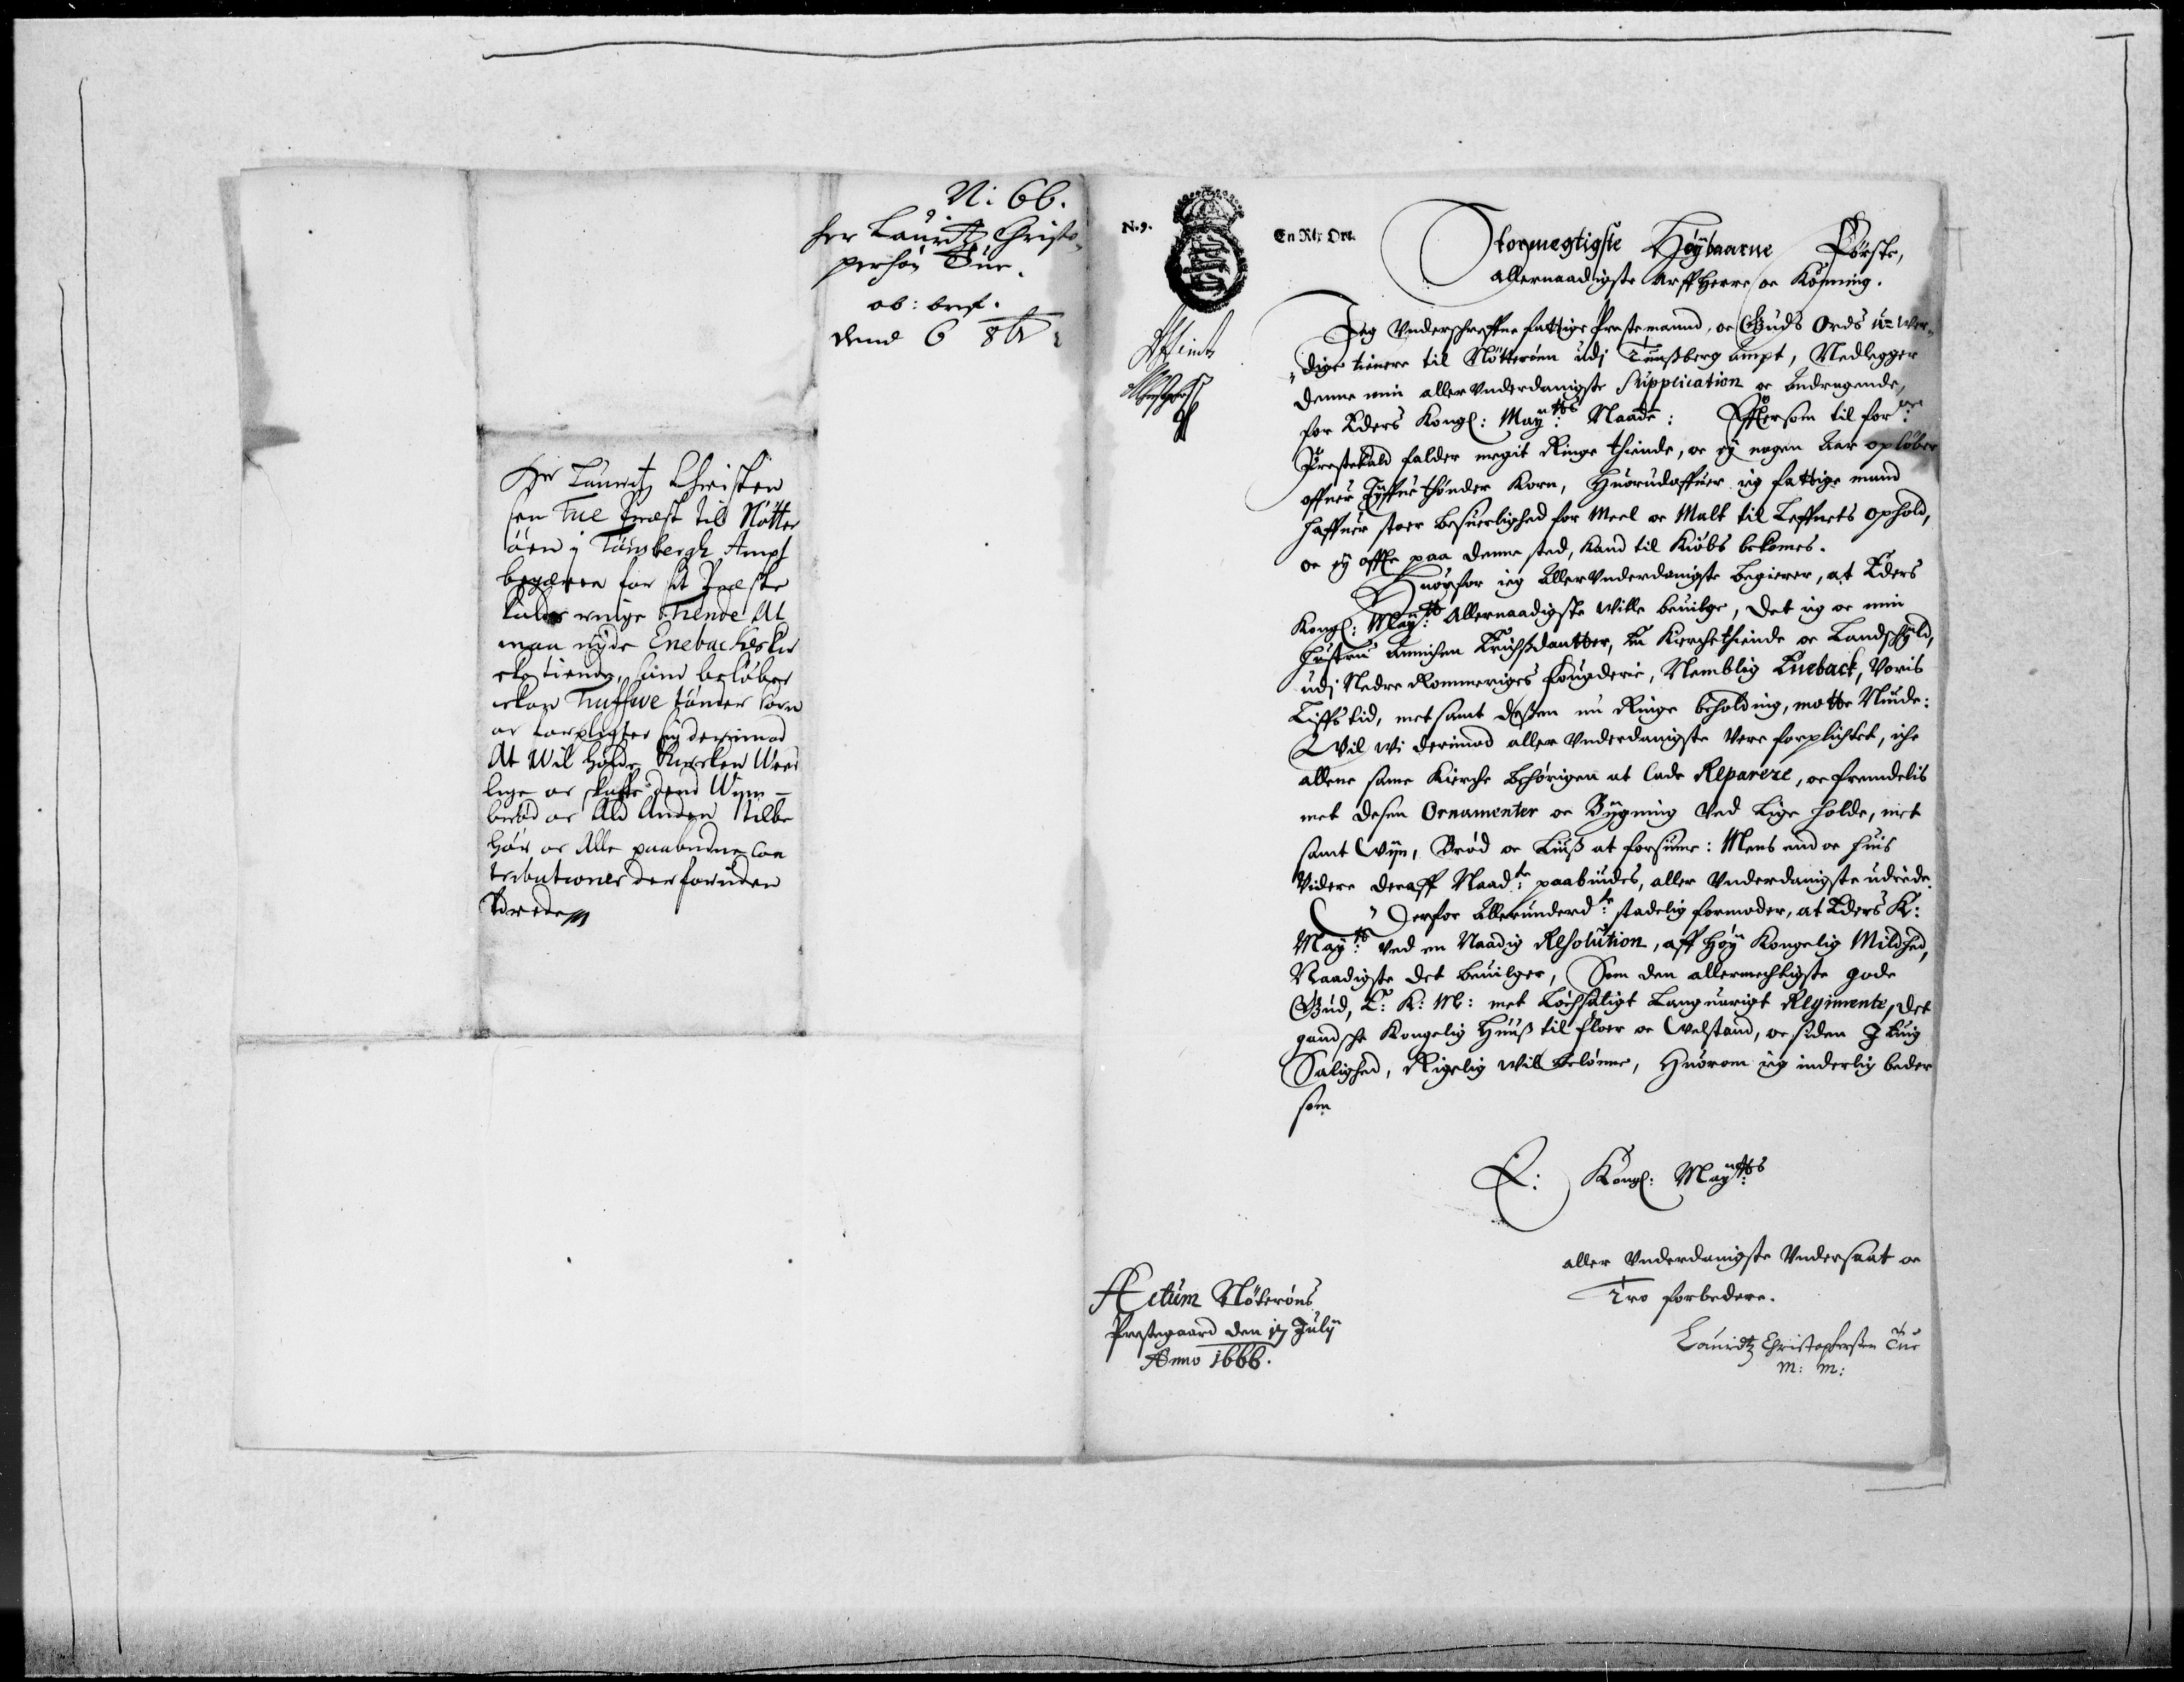 N: 66.
Her Lauridtz Christo-
phersøn Tue.
ob: bref.
dend 6 8br:
Her Lauritz Christen
sen Tue Præst til Nøtter
öen i Tönsbergh Ampt
begærer for sit Præste
kalds ringe Tiende At
maa nÿde Enebackes kir
cketiende, som beløber
Tolfve tønder Korn
oc forpligter sig derimod
At Wil holde Kircken Wed
lige oc skaffe dend Wiin
brød oc Ald Anden tilbe
hør oc Alle paabudne Con
tributioner der foruden
Udrede
N. 9.
En Rtr Ort.
Stormegtigste Höÿbaarne Förste,
allernaadigste Arff Herre oc Konning.
Jeg Vnderschreffne fattige Prestemannd, oc Guds Ords u-wer-
dige tienere til Nötteröen udj Tunßberg ampt, Nedlegger
denne min aller Vnderdanigste Supplication oc Andragende,
for Eders Kongl: Maÿtts Naade: Effter som til forne:
Prestekald falder megit Ringe thiende, oc eÿ nogen Aar opløber
offuer Tyffue thönder Korn, Huorudoffuer ieg fattige mand
haffuer stoer besuerlighed for Meel oc Malt til Leffnets ophold,
oc eÿ offte paa denne sted, kand til Kiöbs bekomes.
Huorfor ieg Aller Vnderdanigste begierer, at Eders
Kongl: Maÿtt: Allernaadigste wille beuilge, det ieg oc min
Hustru Annichen dautter, En Kierchethiende oc Landschÿld,
udj Nedre Rommeriges fougderie, Nemblig Eneback, Voris
Liffs tid, met samt deßen nu Ringe beholding, motte Niude:
Wil wi derimod aller Vnderdanigste Vere forplichtet, iche
allene same Kierche behörigen at lade Reparere, oc fremdelis
met desen Ornamenter oc Bÿgning Ved lige holde, met
samt Wÿn, Bröd oc Liuß at forsiune: Mens end oc huis
Videre deraff Naadte: paabiudes, aller Vnderdanigste udrede.
Derfor Allerunderdte: stadelig formoder, at Eders K:
Maÿtt: Ved en Naadig Resolution, aff Höÿ Kongelig Mildhed,
Naadigste det beuilger, Som den allermechtigste gode
Gud, E: K: M: met Löchsaligt Languarigt Regimente, det
gandsche Kongelig Huuß til floer oc Velstand, oc siden I Euig
Salighed, Rigelig will belönne, Huorom ieg inderlig beder
som
E: Kongl: Maÿtts
aller Vnderdanigste Vndersaat oc
Tro forbedere.
Lauridtz Christophersen Tue
m: m:
Actum Nöteröns
Prestegaard den 17 Julÿ
Anno 1666.